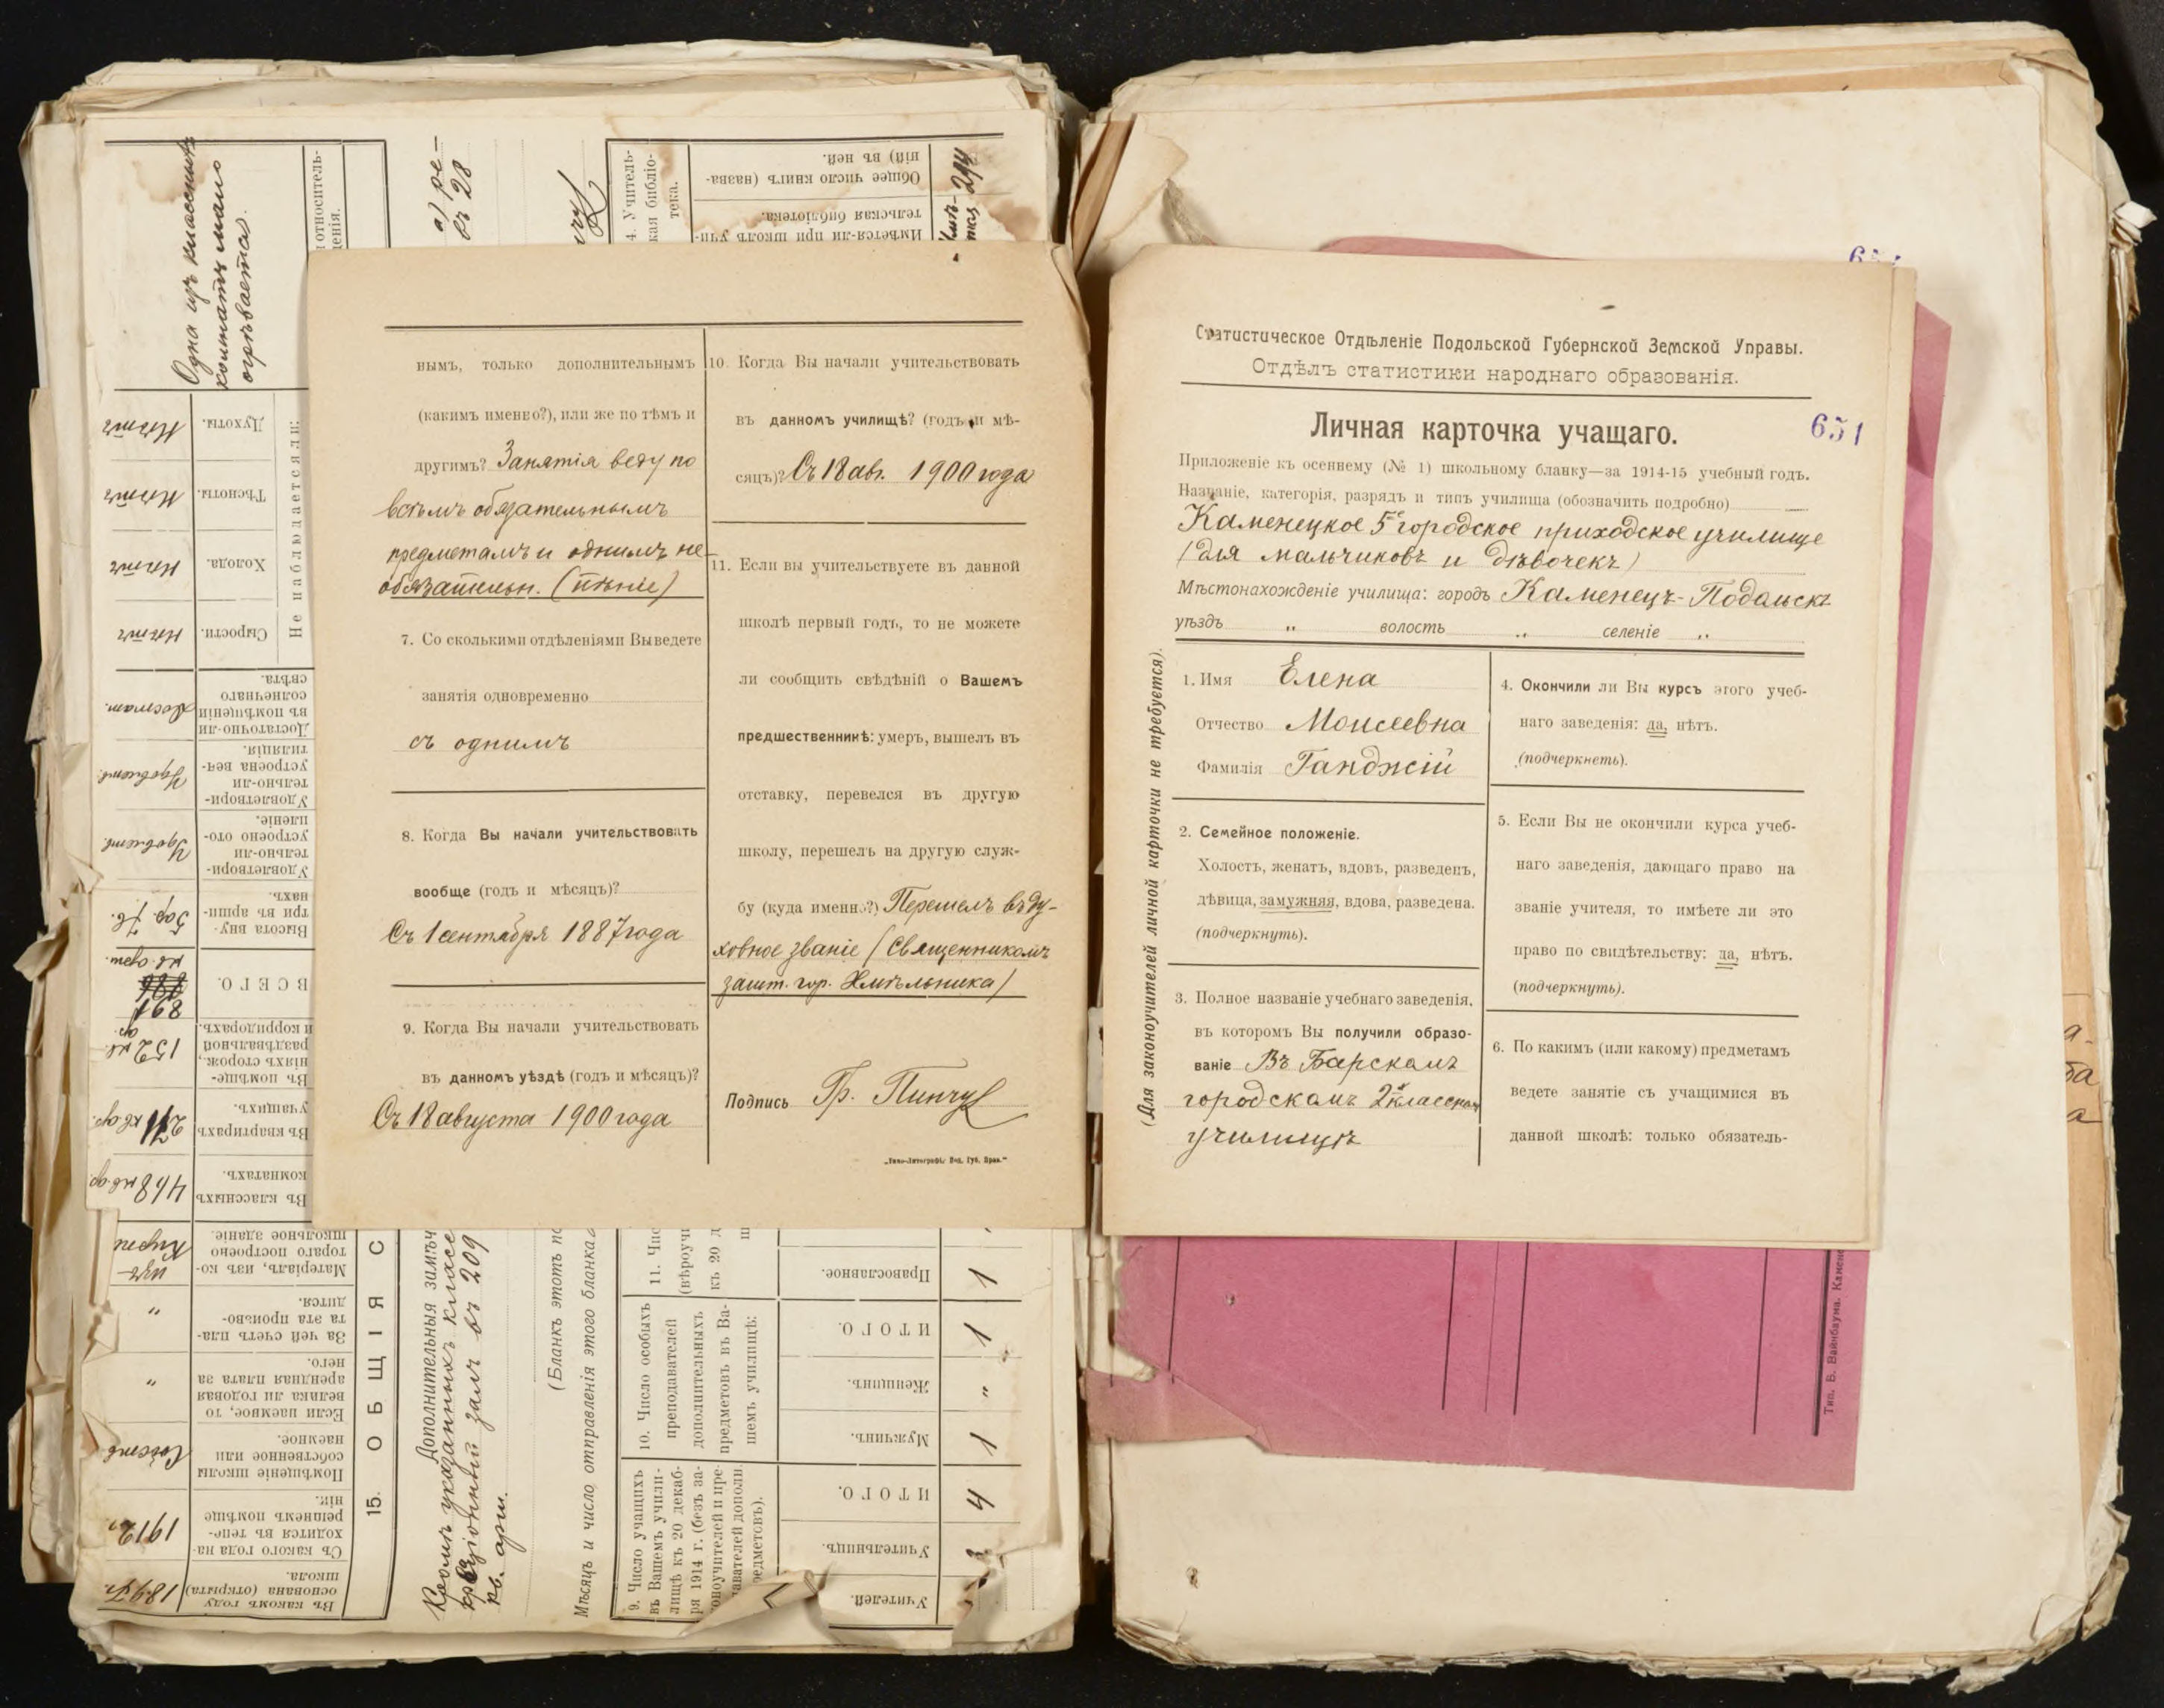 нымъ, только дополнительнымъ
(какимъ именно?), или же по тѣмъ и
другимъ? Занятія веду по
всѣмъ обязательнымъ
предметамъ и однимъ не-
обязательн. (пѣніе)
7. Со сколькими отдѣленіями Вы ведете
занятія одновременно
съ однимъ
8. Когда Вы начали учительствовать
вообще (годъ и мѣсяцъ)?
Съ 1 сентября 1887 года
9. Когда Вы начали учительствовать
въ данномъ уѣздѣ (годъ и мѣсяцъ)?
Съ 18 августа 1900 года
10. Когда Вы начали учительствовать
въ данномъ училищѣ? (годъ и мѣ-
сяцъ)? Съ 18 авг. 1900 года
11. Если вы учительствуете въ данной
школѣ первый годъ, то не можете
ли сообщить свѣдѣній о Вашемъ
предшественникѣ: умеръ, вышелъ въ
отставку, перевелся въ другую
школу, перешелъ на другую служ-
бу (куда именно?) Перешелъ въ ду-
ховное званіе (Священникомъ
зашт. гор. Хмѣльника)
Подпись Гр. Пинчук
Статистическое Отдѣленіе Подольской Губернской Земской Управы.
Отдѣлъ статистики народнаго образованія.
Личная карточка учащаго.
651
Приложеніе къ осеннему (№ 1) школьному бланку—за 1914-15 учебный годъ.
Названіе, категорія, разрядъ и типъ училища (обозначить подробно)
Каменецкое 5е городское приходское училище
(для мальчиковъ и дѣвочекъ)
Мѣстонахожденіе училища: городъ Каменецъ-Подольскъ
уѣздъ „ волость „ селеніе „
(Для законоучителей личной карточки не требуется).
1. Имя Елена
Отчество Моисеевна
Фамилія Ганджій
2. Семейное положеніе.
Холостъ, женатъ, вдовъ, разведенъ,
дѣвица, замужняя, вдова, разведена.
(подчеркнуть).
3. Полное названіе учебнаго заведенія,
въ которомъ Вы получили образо-
ваніе Въ Барскомъ
городскомъ 2х классном
училищѣ
4. Окончили ли Вы курсъ этого учеб-
наго заведенія: да, нѣтъ.
(подчеркнеть).
5. Если Вы не окончили курса учеб-
наго заведенія, дающаго право на
званіе учителя, то имѣете ли это
право по свидѣтельству: да, нѣтъ.
(подчеркнуть).
6. По какимъ (или какому) предметамъ
ведете занятіе съ учащимися въ
данной школѣ: только обязатель-
Одна изъ классныхъ
комнатъ мало
огрѣвается.
Не наблюдается ли:
Духоты. Нѣтъ
Тѣсноты. Нѣтъ
Холода. Нѣтъ
Сырости. Нѣтъ
Достаточно-ли
въ помѣщеніи
солнечнаго
свѣта.
Удовлетвори-
тельно-ли
устроена вен-
тиляція.
Удовлетвори-
тельно-ли
устроено ото-
пленіе.
Высота вну-
три въ арши-
нахъ.
ВСЕГО.
891
Въ помѣще-
ніяхъ сторож.,
раздѣвальной
и корридорахъ.
152
Въ квартирахъ
учащихъ.
Въ классныхъ
комнатахъ.
468
Матеріалъ, изъ ко-
тораго построено
школьное зданіе.
За чей счетъ пла-
та эта произво-
дится.
„
Если наемное, то
велика ли годовая
арендная плата за
него.
„
Помѣщеніе школы
собственное или
наемное.
Съ какого года на-
ходится въ тепе-
решнемъ помѣще-
ніи.
1912
Въ какомъ году
основана (открыта)
школа.
15. ОБЩІЯ С
Дополнительныя замѣч
Кромѣ указанныхъ классн
кв. арш.
(Бланкъ этотъ по
Мѣсяцъ и число отправленія этого бланка
4. Учитель-
кая библіо-
тека.
Имѣется-ли при школѣ учи-
тельская библіотека.
Общее число книгъ (назва-
ній) въ ней.
9. Число учащихъ
въ Вашемъ учили-
лищѣ къ 20 декаб-
ря 1914 г. (безъ за-
коноучителей и пре-
Учителей.
Учительницъ.
ИТОГО.
4
10. Число особыхъ
преподавателей
дополнительныхъ
предметовъ въ Ва-
шемъ училищѣ:
Мужчинъ.
1
Женщинъ.
„
ИТОГО.
1
Православное.
1
Тип. Б. Вайнбаума. Камен